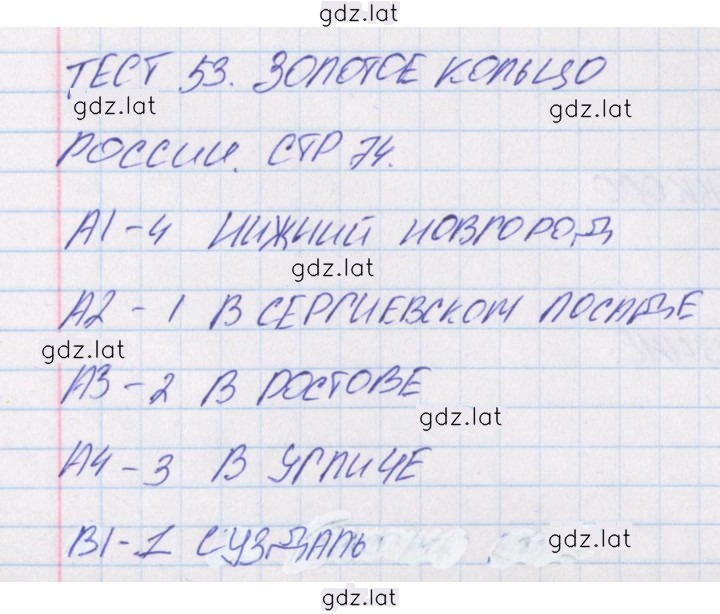 gdz.lat
ТЕСТ 53. ЗОЛОТОЕ КОЛЬЦО
gdz.lat gdz.lat
РОССИИ. СТР 74.
А1-4 НИЖНИЙ НОВГОРОД
gdz.lat
А2-1 В СЕРГИЕВСКОМ ПОСАДЕ
gdz.lat
А3-2 В РОСТОВЕ
gdz.lat
А4-3 В УГЛИЧЕ
В1-1 СУЗДАЛЬ gdz.lat
gdz.lat